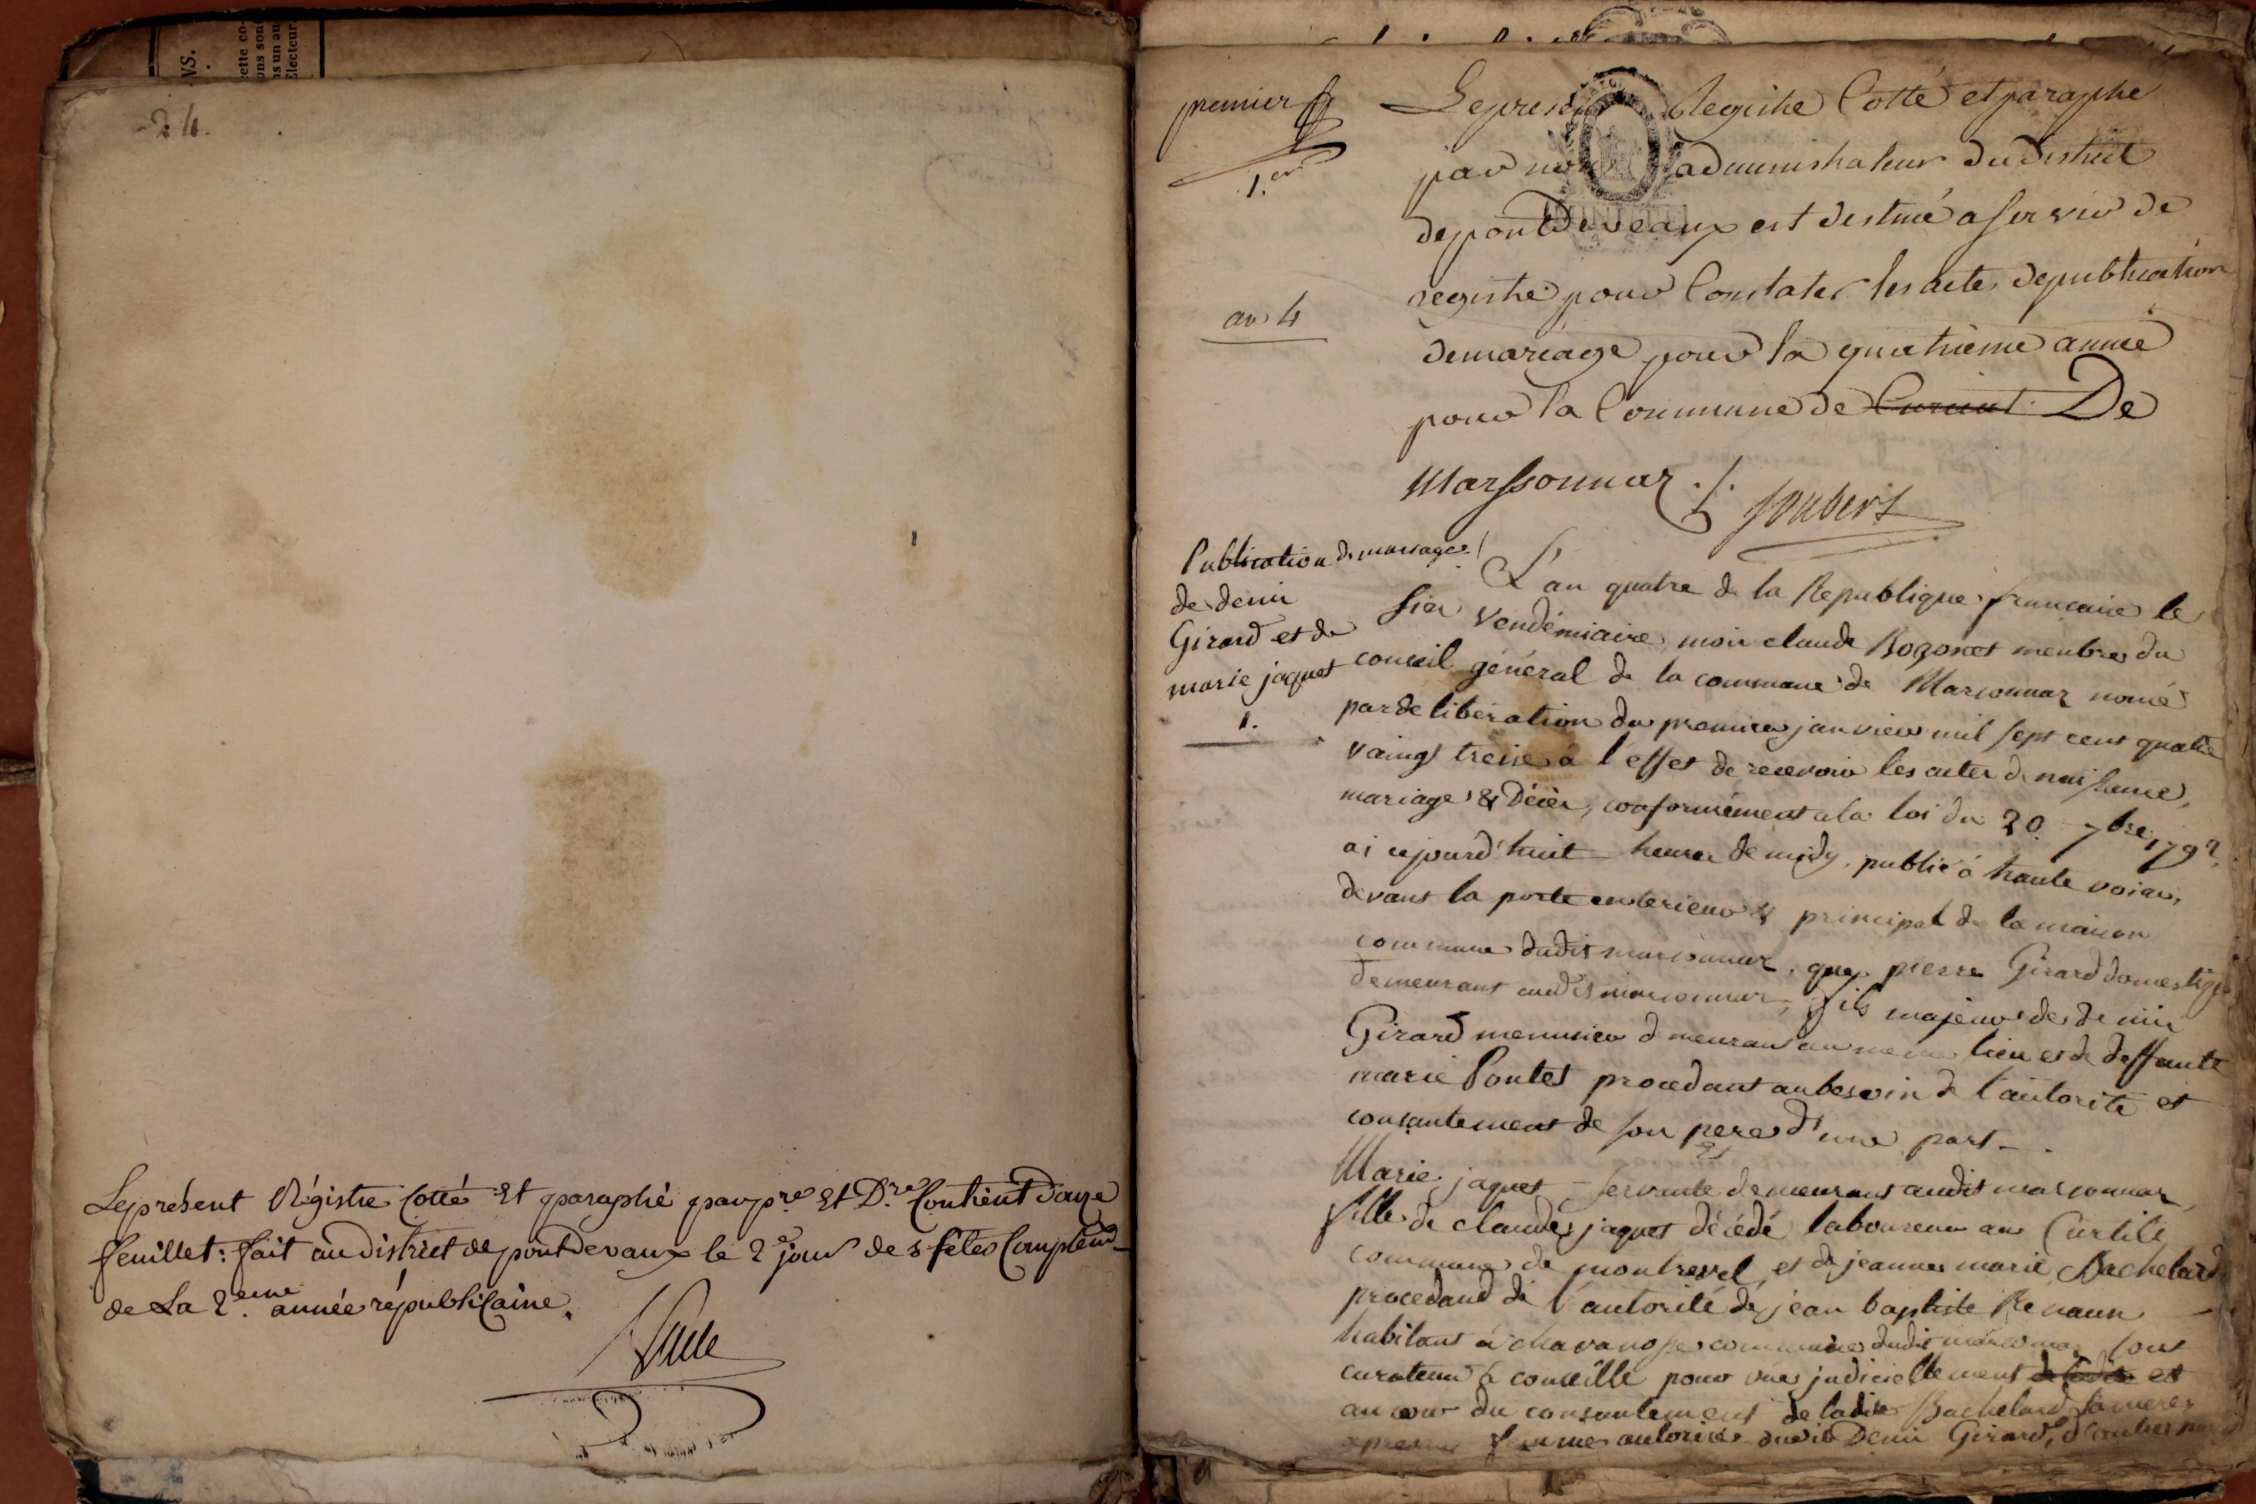 24.
Le présent Régistre Cotté Et paraphé par pre. Et Dre. Contient douze
feuillet: fait au district de pontdevaux le 2e jour de s fêtes Complem-
de La 2.eme année républicaine.
premier
1.er
Le present Registre Cotté et paraphé
par nous administrateur du district
de pontdeveaux est destiné a servir de
registre pour Constater les actes de publication
de mariage pour la quatrieme année
pour la Commune de Curciat De
Marssonnaz ./. Joubert
an 4
Publication de mariage
de denis
Girard et de
marie jaquet
1.
L'an quatre de la Republique francaise le
sier vendémiaire, moi claude Bozonet menbre du
conseil général de la commune de Marsonnaz nomé
par deliberation du premier janvier mil sept cent quatre
vaingt treise à l'effet de recevoir les actes de naissance,
mariage & Décès, conformément a la loi du 20. 7bre 1792,
ai aujourd'huit heure de midy, publié à haute voiax,
devant la porte exterieur & principal de la maison
commune dudit marsonnaz, que pierre Girard domestique
demeurant audit marsonnaz, fils majeur de denis
Girard menusier demeurant au meme lieu et de deffunte
marie Poulet procedant au besoin de l'autorité et
consantement de son pere d'une part -
Marie jaquet, servante demeurant audit marsonnaz
fille de claude jaquet décédé laboureur au Curtile
commune de montrevel, et de jeanne marie Bachelard
procedand de l'autorité de jean baptiste Renaun
habitant à chavanosse commune dudit marsonnaz sont
curateur & conseille pour vües judiciellement de ladite et
ancour du consantement de ladite Bachelard sa mere
Denis Girard,